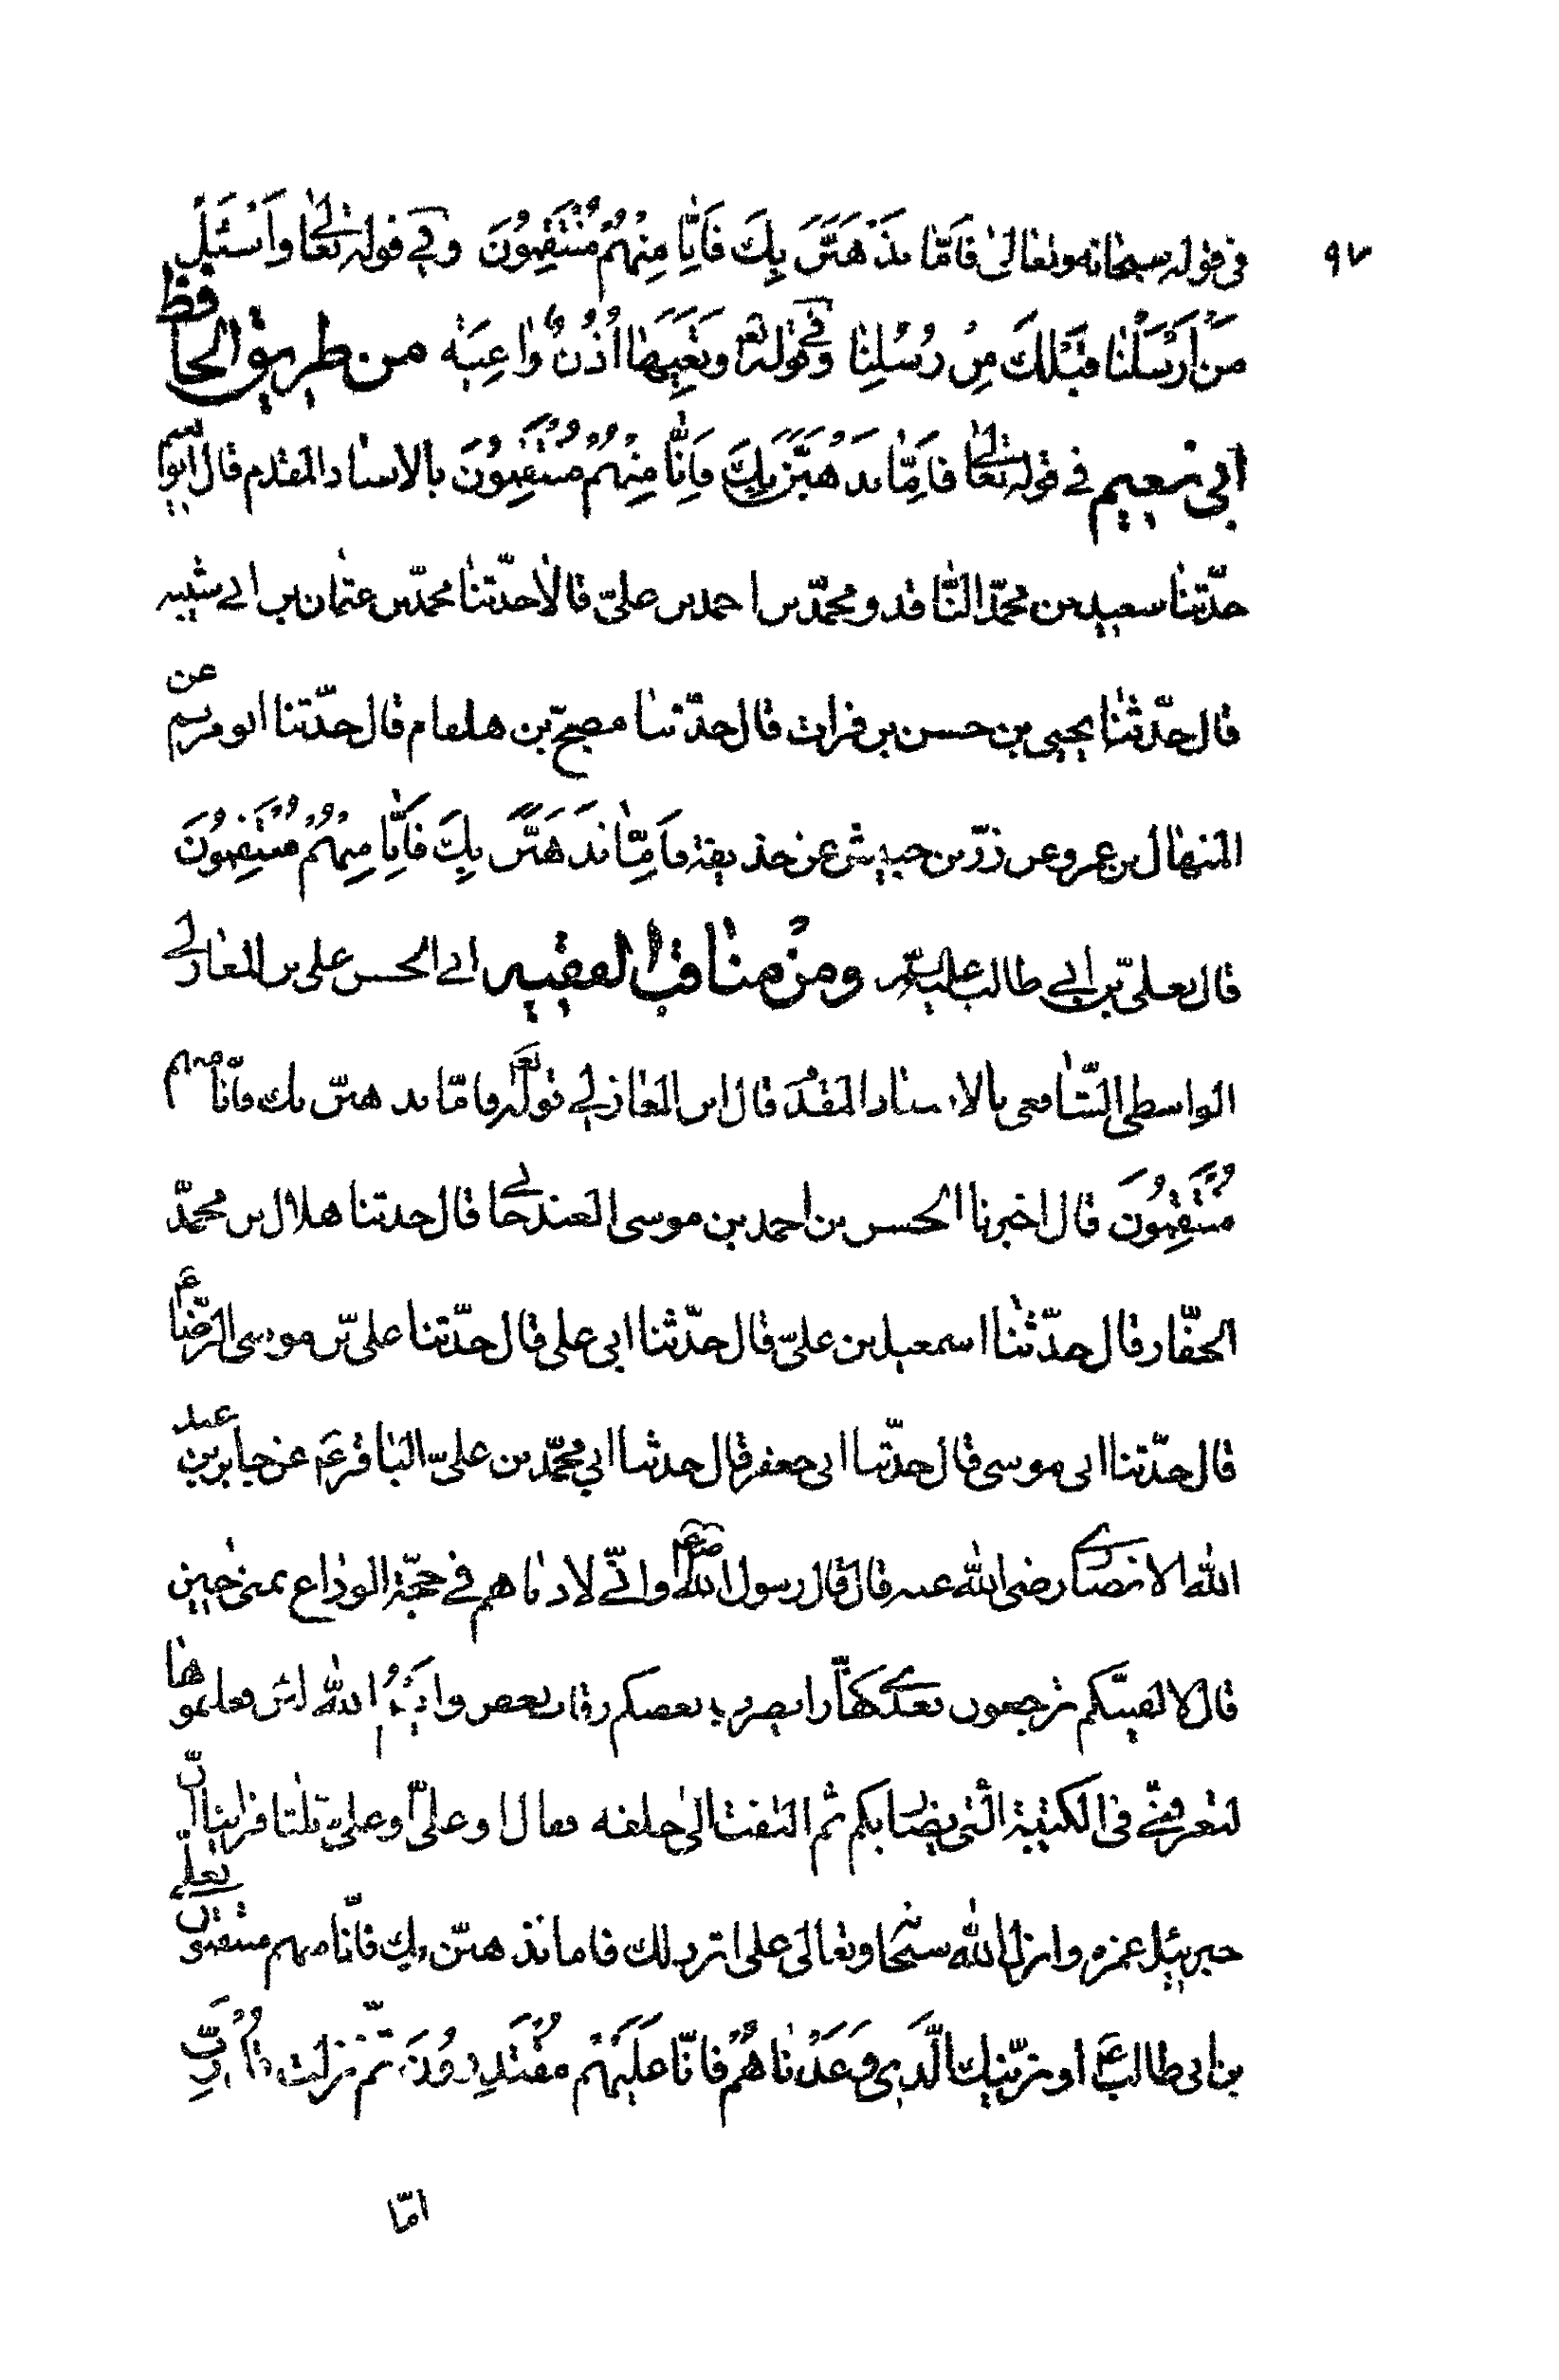 ٩٧
في قوله سبحانه وتعالى فَاِمّا نَذْهَبَنَّ بِكَ فَاِنّا مِنْهُمْ مُنْتَقِمُونَ وفي قوله تعالى وَاسْئَلْ
مَنْ اَرْسَلْنا قَبْلَكَ مِنْ رُسُلِنا وفي قوله تع وَتَعِيَهٰا اُذُنٌ وٰاعِيَة من طريق الحافظ
ابي نعيم في قوله تعالى فَاِمّا نَذْهَبَنَّ بِكَ فَاِنّا مِنْهُمْ مُنْتَقِمُونَ بالاسناد المقدم قال ابو نعيم
حدّثنا سعيد بن محمّد النّاقد ومحمّد بن احمد بن عليّ قالا حدّثنا محمّد بن عثمان بن ابي شيبه
قال حدّثنا يحيى بن حسن بن فرات قال حدّثنا مصبح بن هلقام قال حدّثنا ابو مريم عن
المنهال بن عمرو عن زرّ بن حبيش عن حذيفة فَاِمّا نَذْهَبَنَّ بِكَ فَاِنّا مِنْهُمْ مُنْتَقِمُونَ
قال بعليّ بن ابي طالب عليه السلم ومن مناقب الفقيه ابي الحسن علي بن المغازلي
الواسطي الشّافعي بالاسناد المقدّم قال ابن المغازلي قوله تع فامّا نذهبنّ بك فانّا منهم
مُنْتَقِمُونَ قال اخبرنا الحسن بن احمد بن موسى الغندجاني قال حدثنا هلال بن محمّد
الحفّار قال حدّثنا اسمعيل بن عليّ قال حدّثنا ابي علي قال حدّثنا عليّ بن موسى الرّضا ع
قال حدّثنا ابي موسى قال حدّثنا ابي جعفر قال حدثنا ابي محمّد بن عليّ الباقر ع عن جابر بن عبد
الله الانصاري رضي الله عنه قال قال رسول الله صلعم وانّي لادناهم في حجّة الوداع بمنى حين
قال لا الفينّكم ترجعون بعدي كفّارا يضرب بعضكم رقاب بعض وايْمُ الله لئن فعلتموها
لتعرفنّي في الكتيبة الّتي يضاربكم ثم التفت الى خلفه فقال او عليّ او عليّ ثلثا فراينا انّ
جبرئيل غمزه وانزل الله سبحانه وتعالى على اثر ذلك فاما نذهبنّ بك فانّا منهم منتقمون بعليّ
بن ابي طالب ع او نرينّك الَّذِي وَعَدْناهُمْ فَانّا عَلَيْهِمْ مُقْتَدِرُونَ ثمّ نزلت قُلْ رَبِّ
امّا